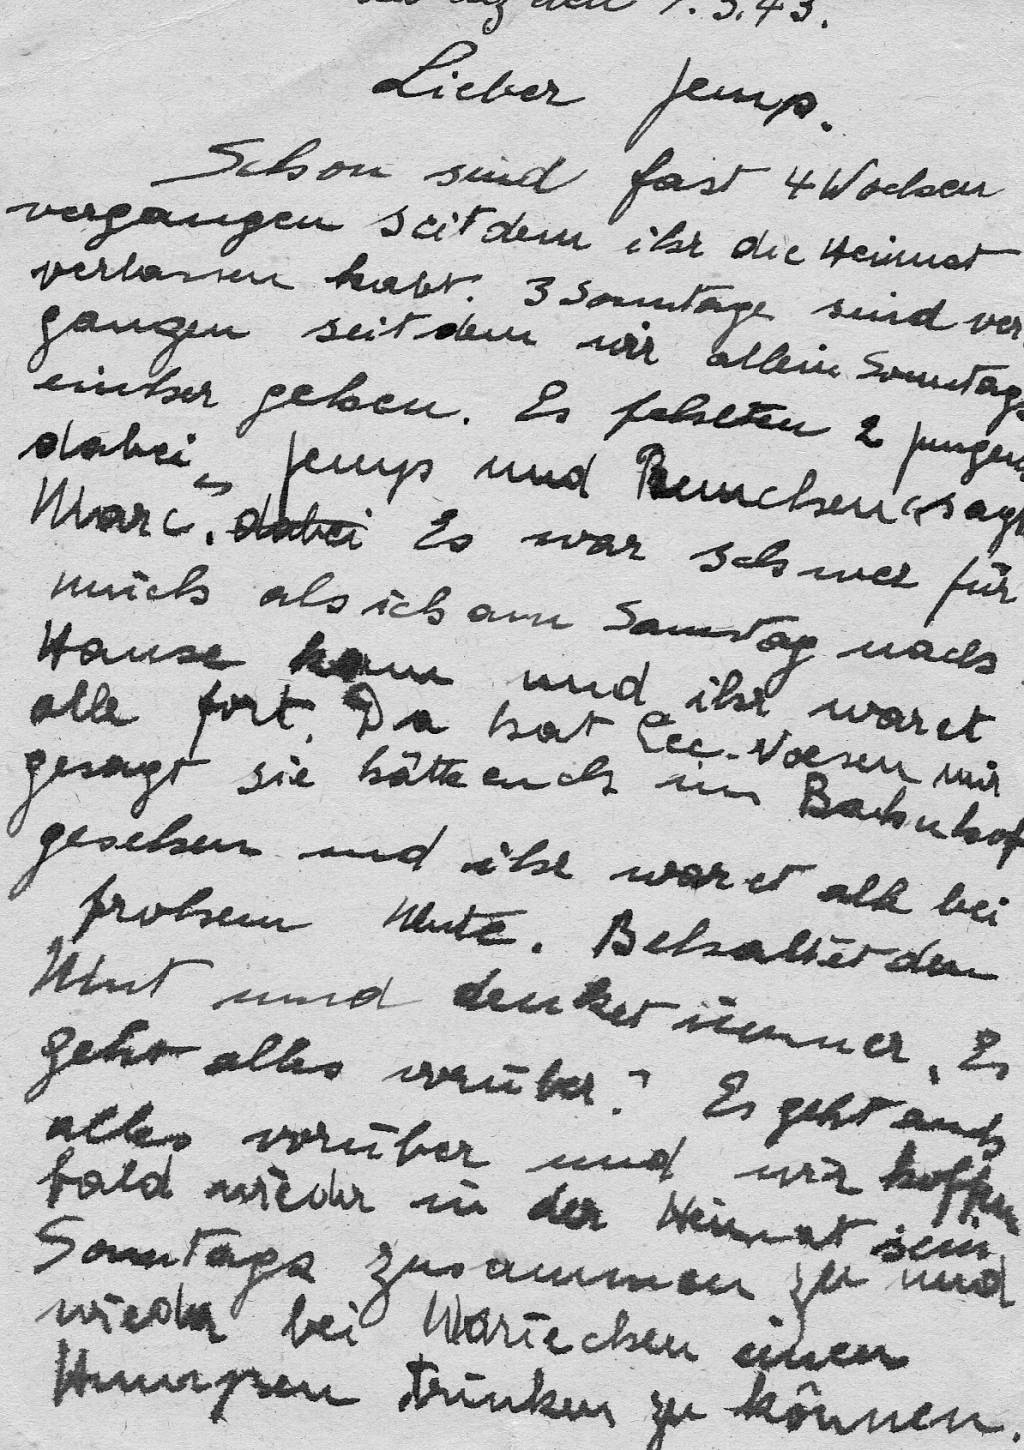 den 7.3.43.
Lieber Jemp.
Schon sind fast 4 Wochen
vergangen seitdem ihr die Heimat
verlassen habt. 3 Sonntage sind ver
gangen seitdem wir allein Sonntags
einher gehen. Es fehlten 2 Jungens
dabei, Jemp und (sagt
Marc. dabei Es war schwer für
mich als ich am Samstag nach
Hause kam und ihr waret
alle fort. Da hat mir
gesagt sie hätte euch im Bahnhof
gesehen und ihr waret alle bei
frohem Mute. Behaltet den
Mut und denket immer, Es
geht alles vorüber? Es geht auch
alles vorüber und wir hoffen
bald wieder in der Heimat sein
Sonntags zusammen zu und
wieder bei einen
Humpen trinken zu können.